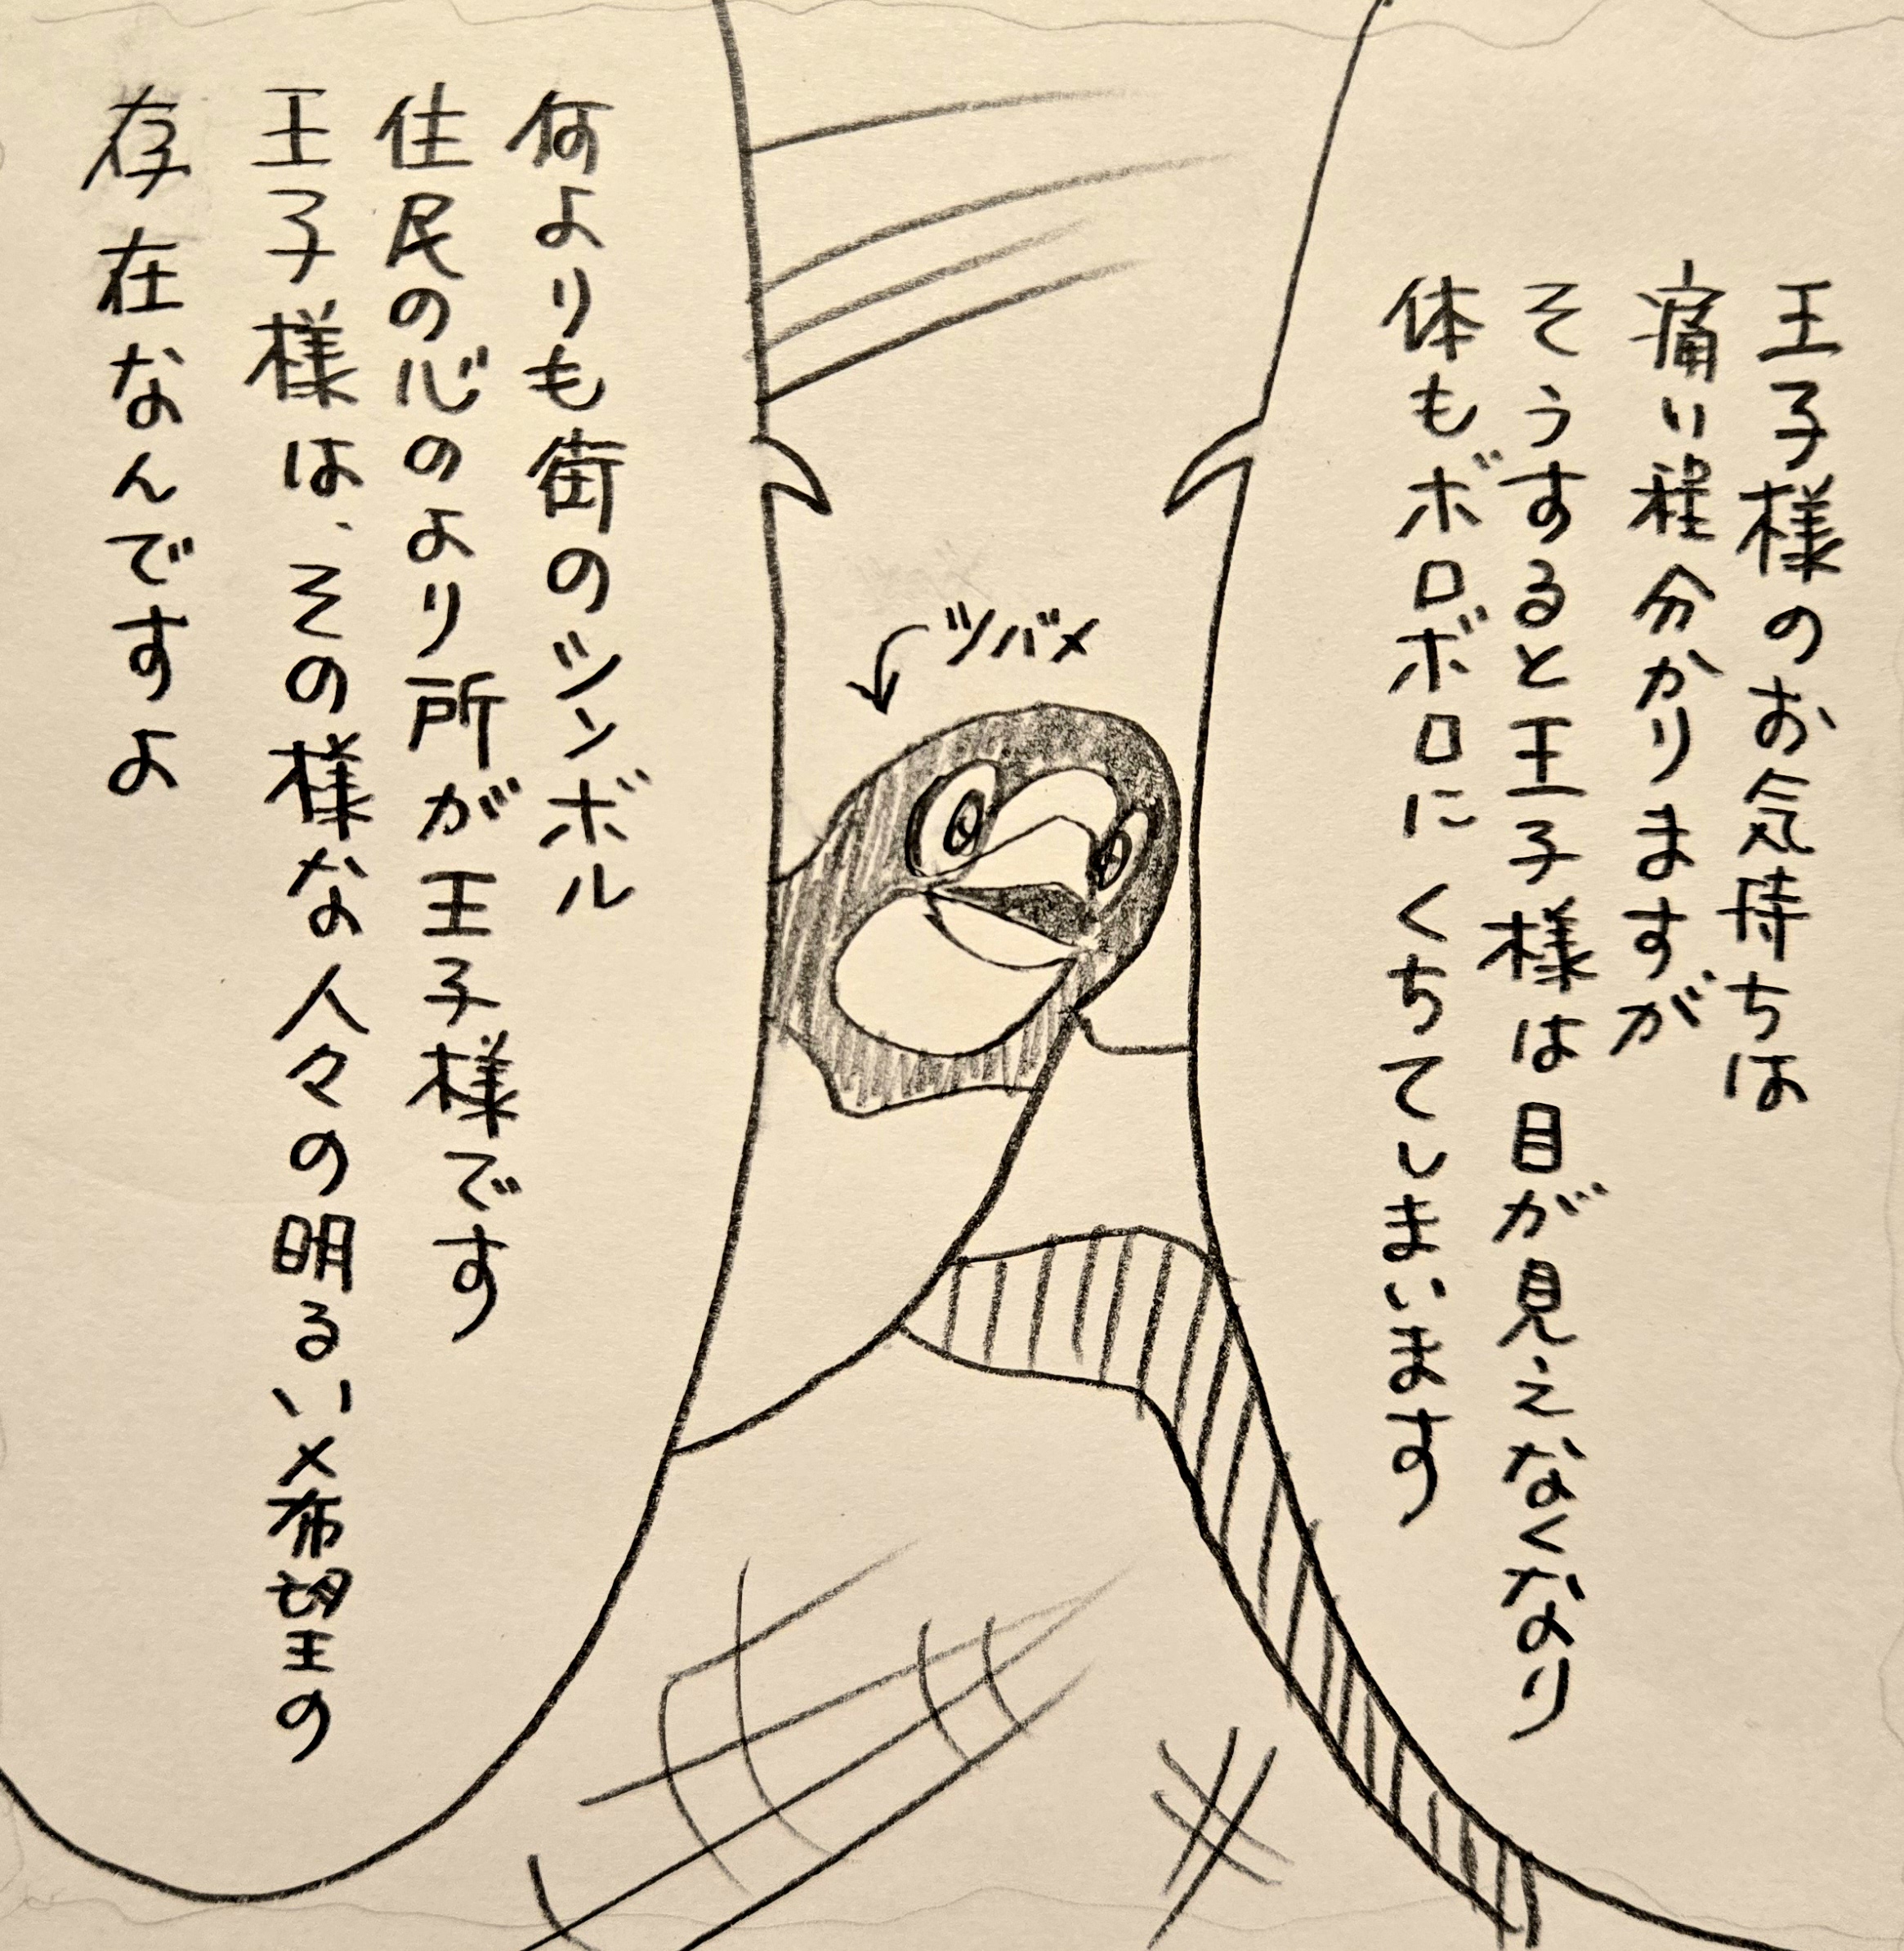 王子様のお気持ちは
痛い程分かりますが
そうすると王子様は目が見えなくなり
体もボロボロにくちてしまいます
ツバメ
何よりも街のシンボル
住民の心のより所が王子様です
王子様は、その様な人々の明るい希望の
存在なんですよ